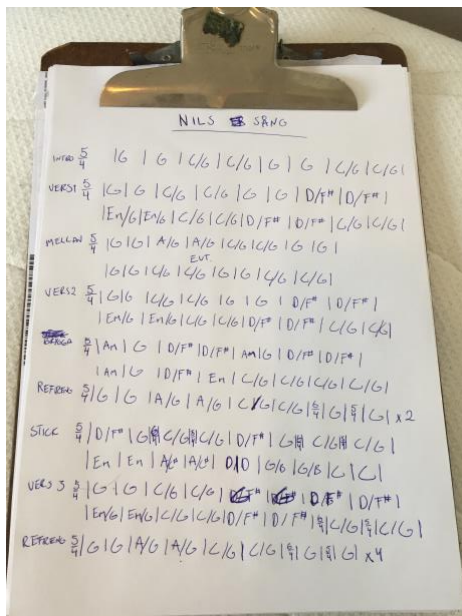 NILS SÅNG
INTRO 5/4 |G | G | C/G | C/G | G | G | C/G | C/G |
VERS1 5/4 |G | G | C/G | C/G | G | G | D/F# | D/F# |
|Em/G | Em/G | C/G | C/G | D/F# | D/F# | C/G | C/G |
MELLAN 5/4 |G | G | A/G | A/G | C/G | C/G | G | G |
EVT.
|G | G | C/G | C/G | G | G | C/G | C/G |
VERS2 5/4 | G | G | C/G | C/G | G | G | D/F# | D/F# |
| Em/G | Em/G | C/G | C/G | D/F# | D/F# | C/G | C/G |
5/4 | Am | G | D/F# | D/F# | Am | G | D/F# | D/F# |
| Am | G | D/F# | Em | C/G | C/G | C/G | C/G |
REFRENG 5/4 | G | G | A/G | A/G | C/G | C/G | 6/4 | G | 5/4 | G | x2
STICK 5/4 | D/F# | G C/G C/G | D/F# | G C/G C/G |
| Em | Em | | G/B | G/B | C | C |
VERS 3 5/4 | G | G | C/G | C/G | D/F# |
| Em/G | Em/G | C/G | C/G | D/F# | D/F# | C/G | 5/4 | C/G |
REFRENG 5/4 | G | G | A/G | A/G | C/G | C/G | 6/4 | G | 5/4 | G | x4